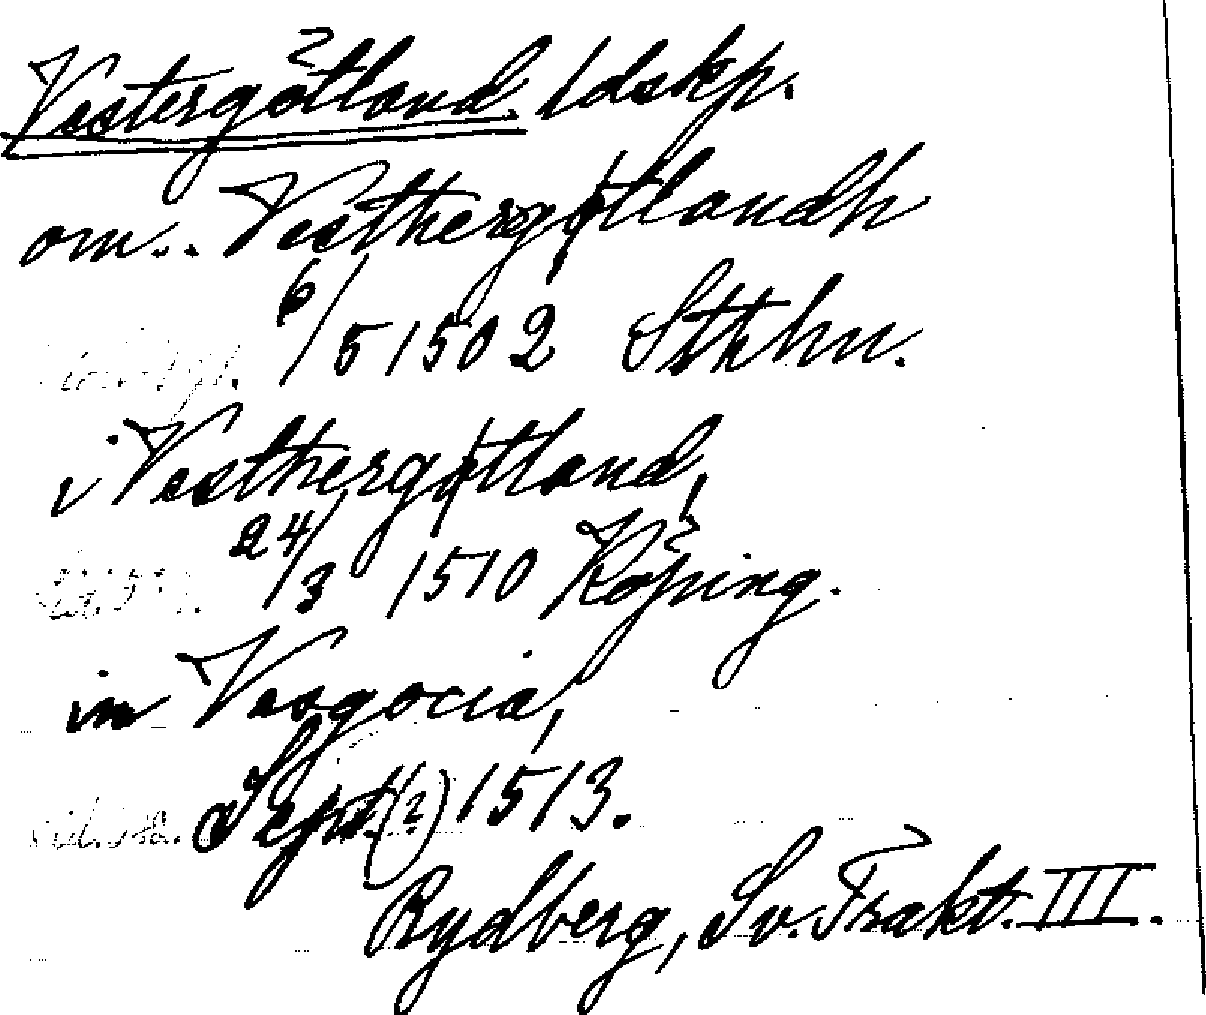 Vestergötland. ldskp.
om.. Vesthergøtlandh
6/5 1502 Sthlm.
i Vesthergøtland,
24/3 1510 Köping.
in Vesgocia,
Sept. (?) 1513.
Rydberg, Sv. Trakt. III.